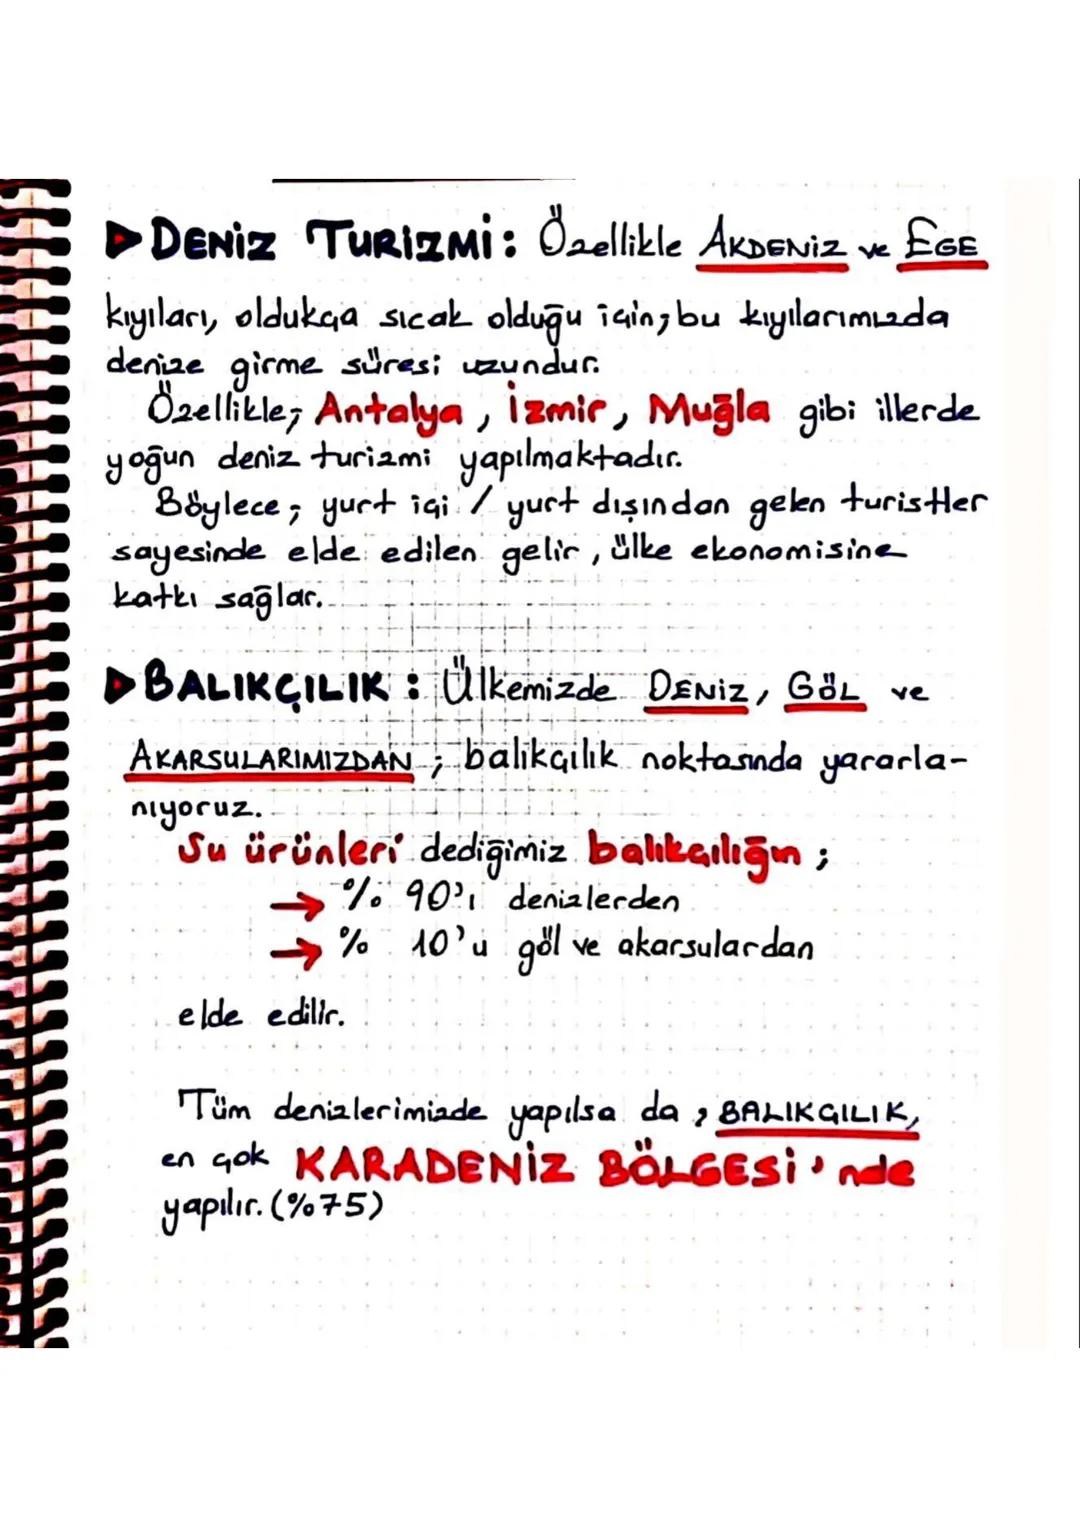 DENİZ TURİZMİ: Özellikle AKDENİZ ve EGE
kıyıları, oldukça sıcak olduğu için; bu kıyılarımızda
denize girme süresi uzundur.
Özellikle; Antalya, İzmir, Muğla gibi illerde
yoğun deniz turizmi yapılmaktadır.
Böylece; yurt içi / yurt dışından gelen turistler
sayesinde elde edilen gelir, ülke ekonomisine
katkı sağlar.
BALIKÇILIK: Ülkemizde DENİZ, GÖL ve
AKARSULARIMIZDAN; balıkçılık noktasında yararla-
nıyoruz.
Su ürünleri dediğimiz balıkçılığın;
→ % 90'ı denizlerden
→ % 10'u göl ve akarsulardan
elde edilir.
Tüm denizlerimizde yapılsa da, BALIKÇILIK,
en çok KARADENİZ BÖLGESİ'nde
yapılır. (%75)